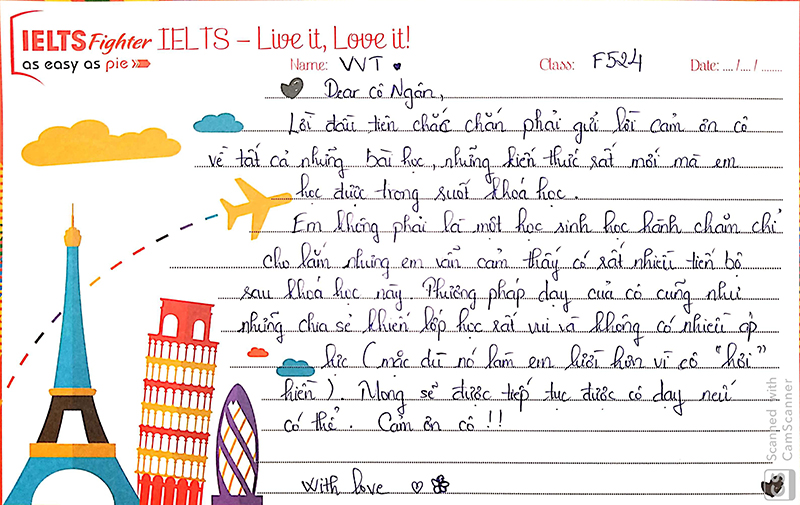 IELTS Fighter IELTS – Live it, Love it!
as easy as pie
Name: VVT Class: F524 Date: .... /.... / .......
Dear cô Ngân,
Lời đầu tiên chắc chắn phải gửi lời cảm ơn cô
về tất cả những bài học, những kiến thức rất mới mà em
học được trong suốt khoá học.
Em không phải là một học sinh học hành chăm chỉ
cho lắm nhưng em vẫn cảm thấy có rất nhiều tiến bộ
sau khoá học này. Phương pháp dạy của cô cũng như
những chia sẻ khiến lớp học rất vui và không có nhiều áp
lực (mặc dù nó làm em lười hơn vì cô "hơi"
hiền). Mong sẽ được tiếp tục được cô dạy nếu
có thể. Cảm ơn cô!!
With love
Scanned with
CamScanner
CS